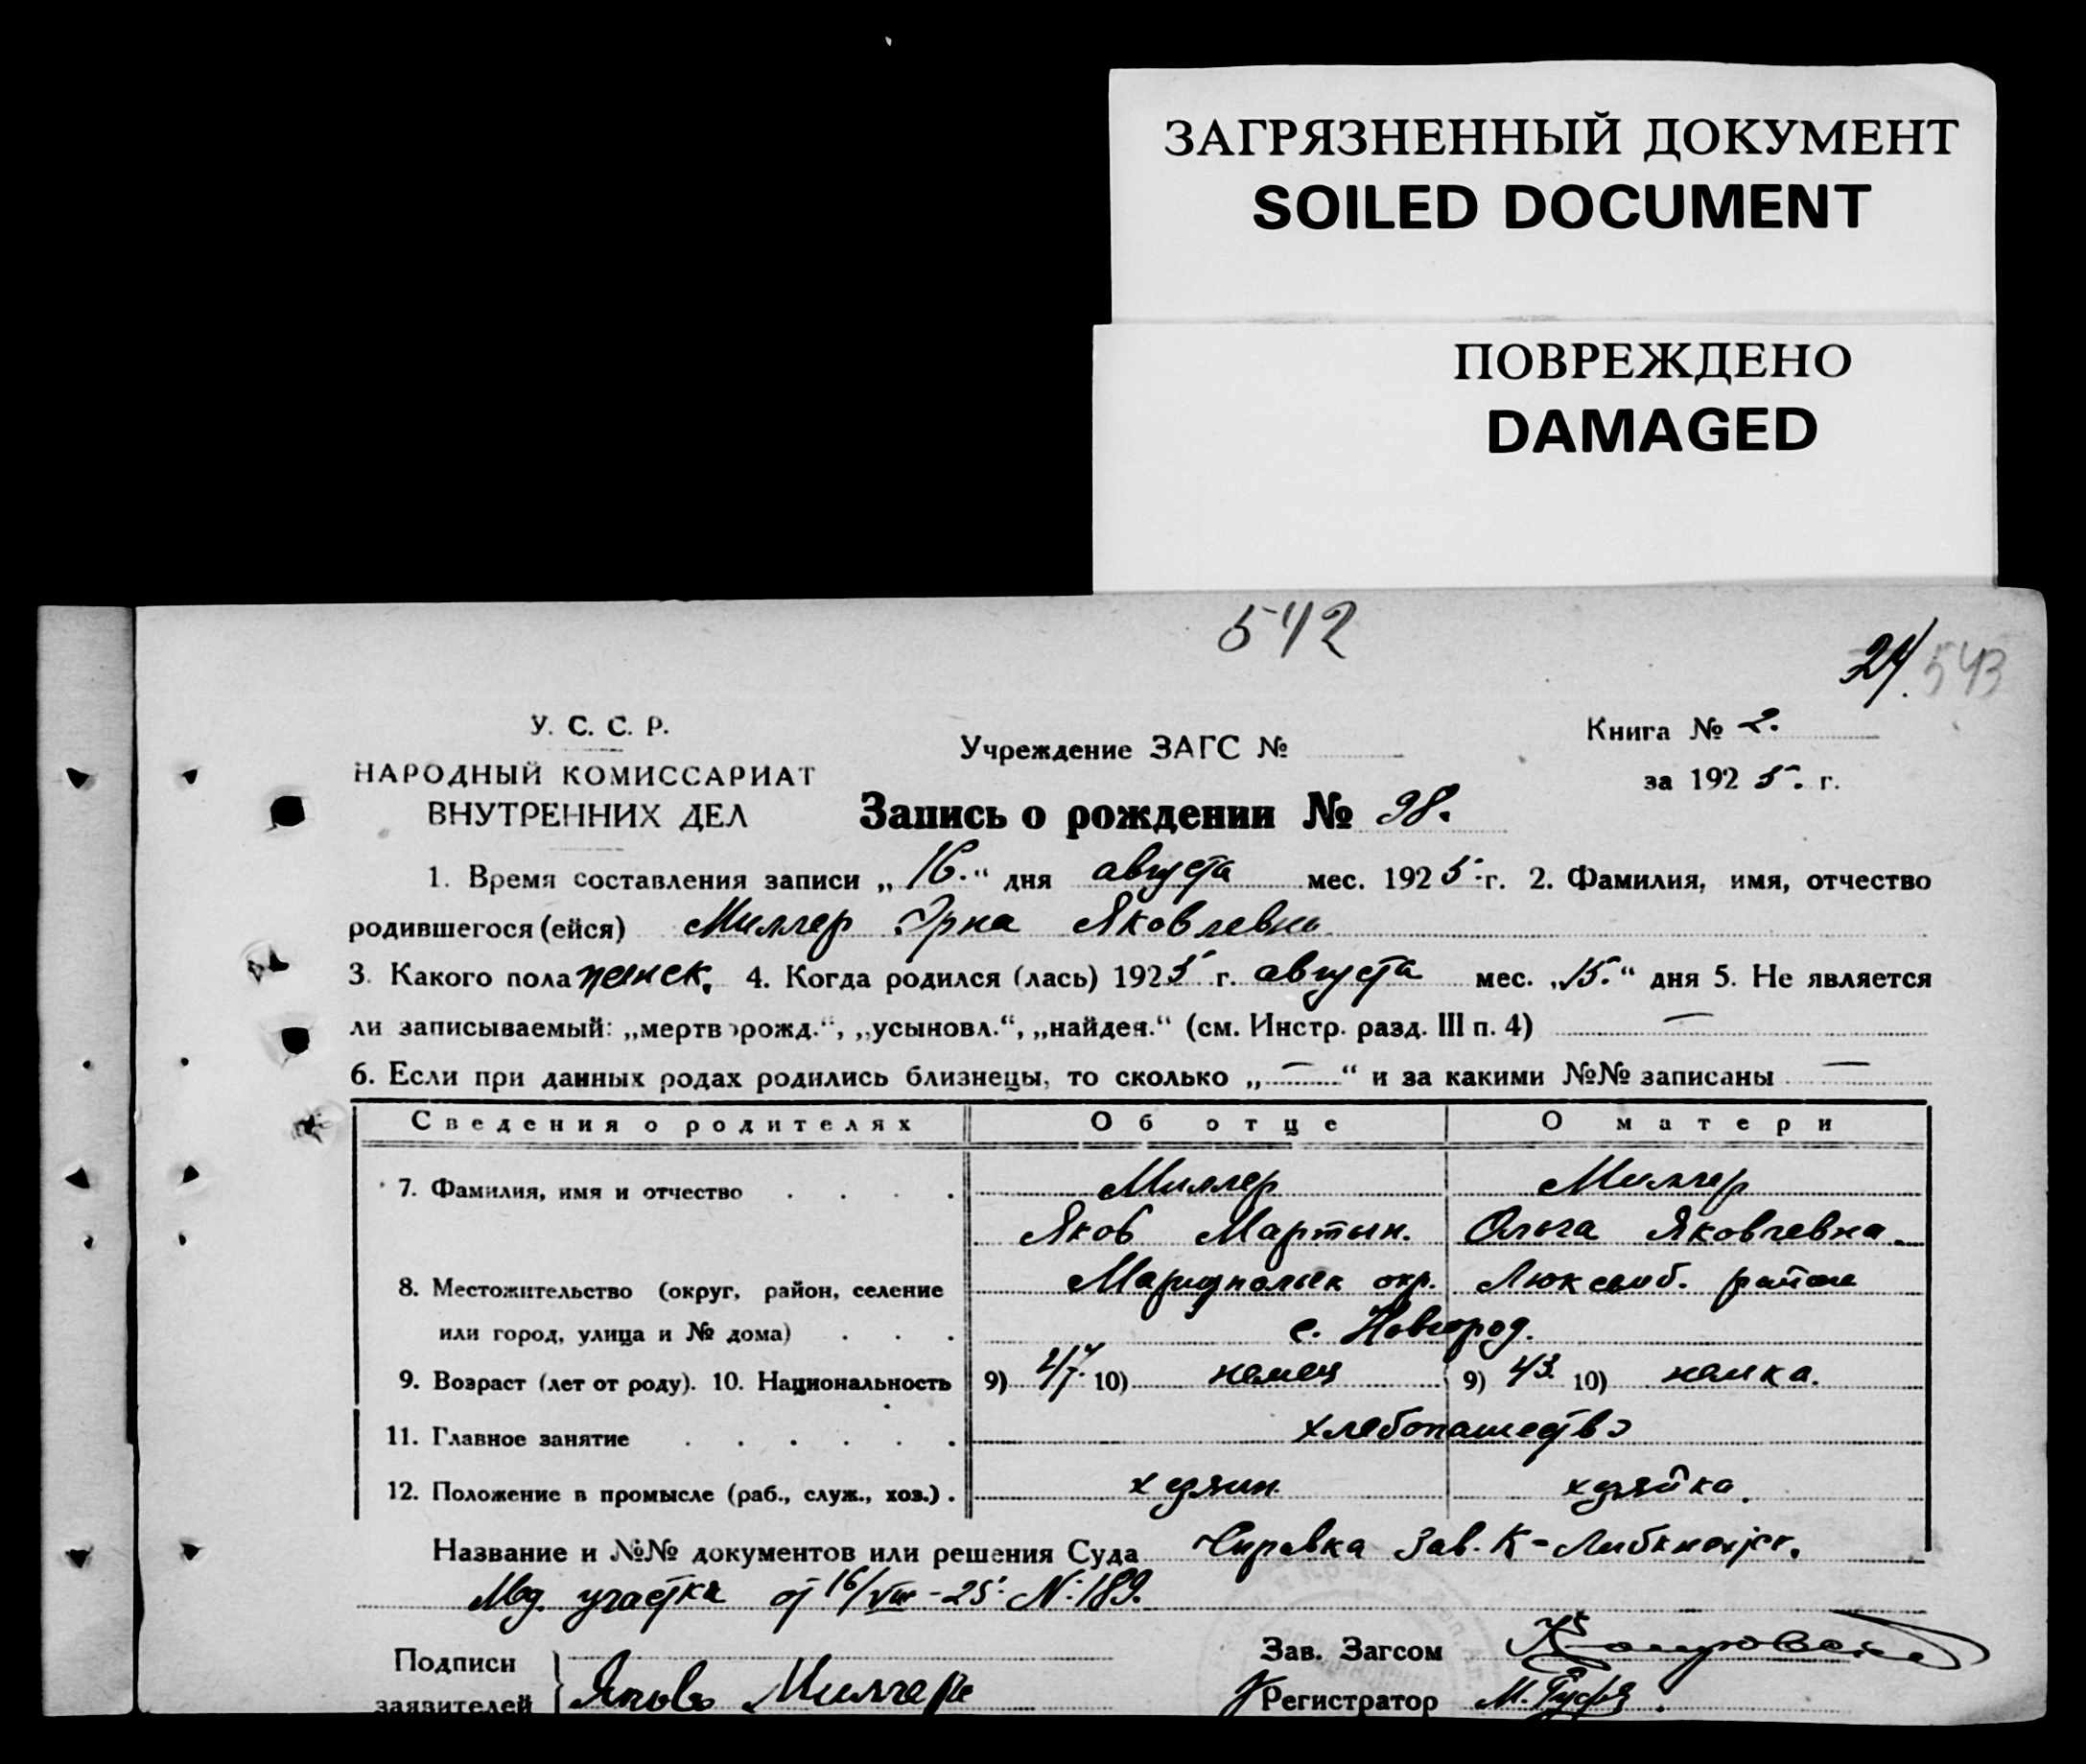 ЗАГРЯЗНЕННЫЙ ДОКУМЕНТ
SOILED DOCUMENT
ПОВРЕЖДЕНО
DAMAGED
542
24. 543
У. С. С. Р.
НАРОДНЫЙ КОМИССАРИАТ
ВНУТРЕННИХ ДЕЛ
Учреждение ЗАГС №
Книга № 2.
за 1925. г.
Запись о рождении № 98.
1. Время составления записи „16.“ дня августа мес. 1925 г. 2. Фамилия, имя, отчество
родившегося (ейся) Миллер Эрна Яковлевна
3. Какого пола женск. 4. Когда родился (лась) 1925 г. августа мес. „15.“ дня 5. Не является
ли записываемый: „мертворожд.“, „усыновл.“, „найден.“ (см. Инстр. разд. III п. 4) —
6. Если при данных родах родились близнецы, то сколько „—“ и за какими №№ записаны —
Сведения о родителях Об отце О матери
7. Фамилия, имя и отчество . . . . Миллер Миллер
Яков Мартын. Ольга Яковлевна.
8. Местожительство (округ, район, селение Мариупольск окр. Люксемб. района
или город, улица и № дома) . . . с. Новгород.
9. Возраст (лет от роду). 10. Национальность 9) 47. 10) немец 9) 43. 10) немка.
11. Главное занятие . . . . . . хлебопашество
12. Положение в промысле (раб., служ., хоз.) . хозяин хозяйка.
Название и №№ документов или решения Суда Справка Зав. К-Либкнехт.
Мед. участка от 16/VIII-25 N:189.
Подписи
заявителей } Яковъ Миллеръ
Зав. Загсом
Регистратор М.